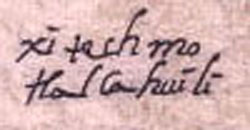 xi tech mo
tlacahuili